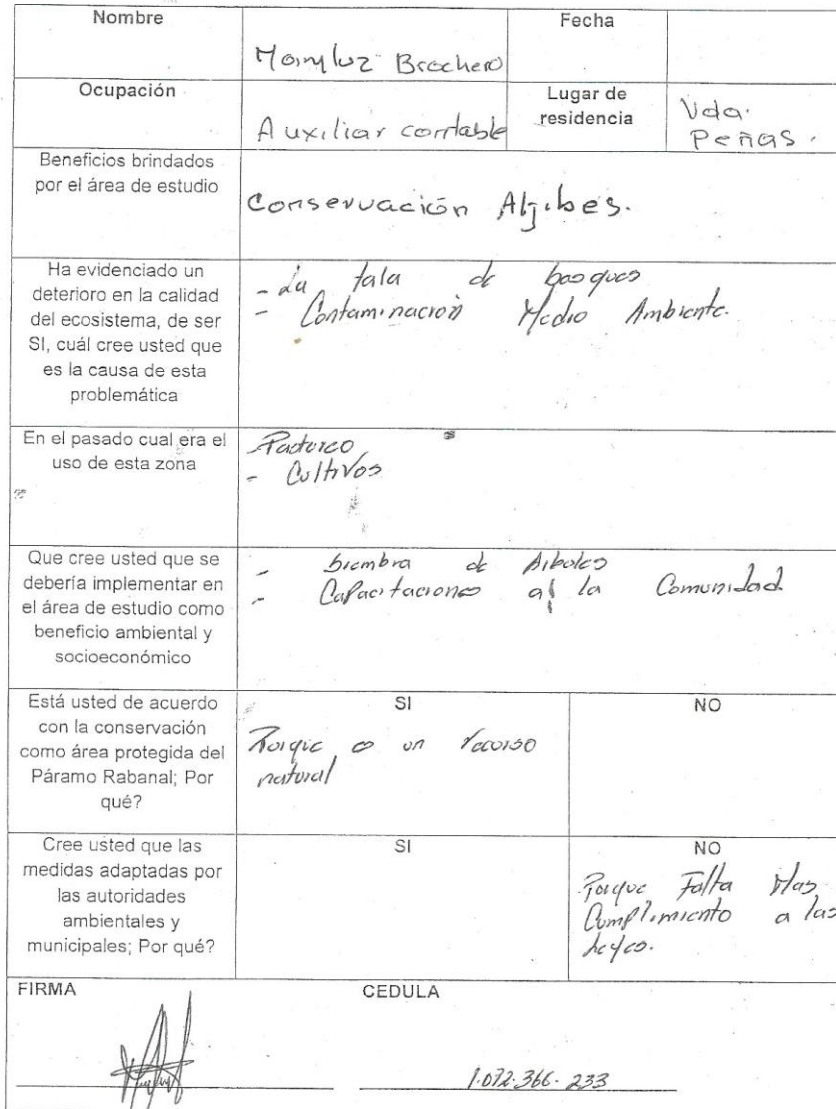 Nombre
Maryluz Brochero
Fecha
Ocupación
Auxiliar contable
Lugar de
residencia
Vda.
Peñas.
Beneficios brindados
por el área de estudio
Conservación Aljibes.
Ha evidenciado un
deterioro en la calidad
del ecosistema, de ser
SI, cuál cree usted que
es la causa de esta
problemática
- La tala de bosques
- Contaminación Medio Ambiente.
En el pasado cual era el
uso de esta zona
Pastoreo
- Cultivos
Que cree usted que se
debería implementar en
el área de estudio como
beneficio ambiental y
socioeconómico
- Siembra de Arboles
- Capacitaciones a la Comunidad
Está usted de acuerdo
con la conservación
como área protegida del
Páramo Rabanal; Por
qué?
SI
Porque es un recurso
natural
NO
Cree usted que las
medidas adaptadas por
las autoridades
ambientales y
municipales; Por qué?
SI
NO
Porque Falta Mas
Cumplimiento a las
Leyes.
FIRMA
CEDULA
1.072.366.233